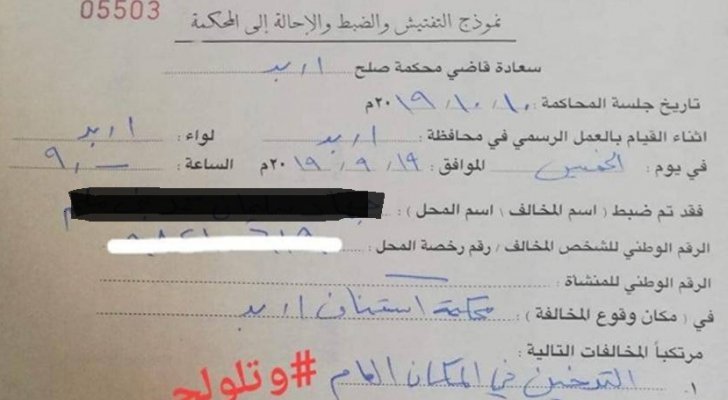 05503
نموذج التفتيش والضبط والإحالة إلى المحكمة
سعادة قاضي محكمة صلح اربد
تاريخ جلسة المحاكمة : ١٠ / ١٠ / ٢٠١٩م
اثناء القيام بالعمل الرسمي في محافظة : اربد لواء : اربد
في يوم : الخميس الموافق : ١٩ / ٩ / ٢٠١٩م الساعة : ٩
فقد تم ضبط ( اسم المخالف / اسم المحل ) :
الرقم الوطني للشخص المخالف / رقم رخصة المحل :
الرقم الوطني للمنشاة :
في ( مكان وقوع المخالفة ) : محكمة استئناف اربد
مرتكباً المخالفات التالية :
١. التدخين في المكان العام